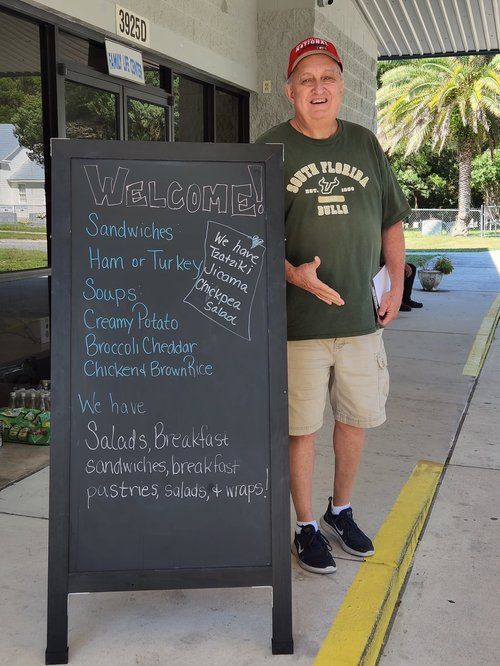 3925D
FAMILY LIFE CENTER
NATIONAL
WELCOME!
Sandwiches
Ham or Turkey
Soups:
Creamy Potato
Broccoli Cheddar
Chicken & Brown Rice
We have
Tzatziki
Jicama
Chickpea
Salad
We have
Salads, Breakfast
sandwiches, breakfast
pastries, salads, & wraps!
SOUTH FLORIDA
EST. 1956
BULLS